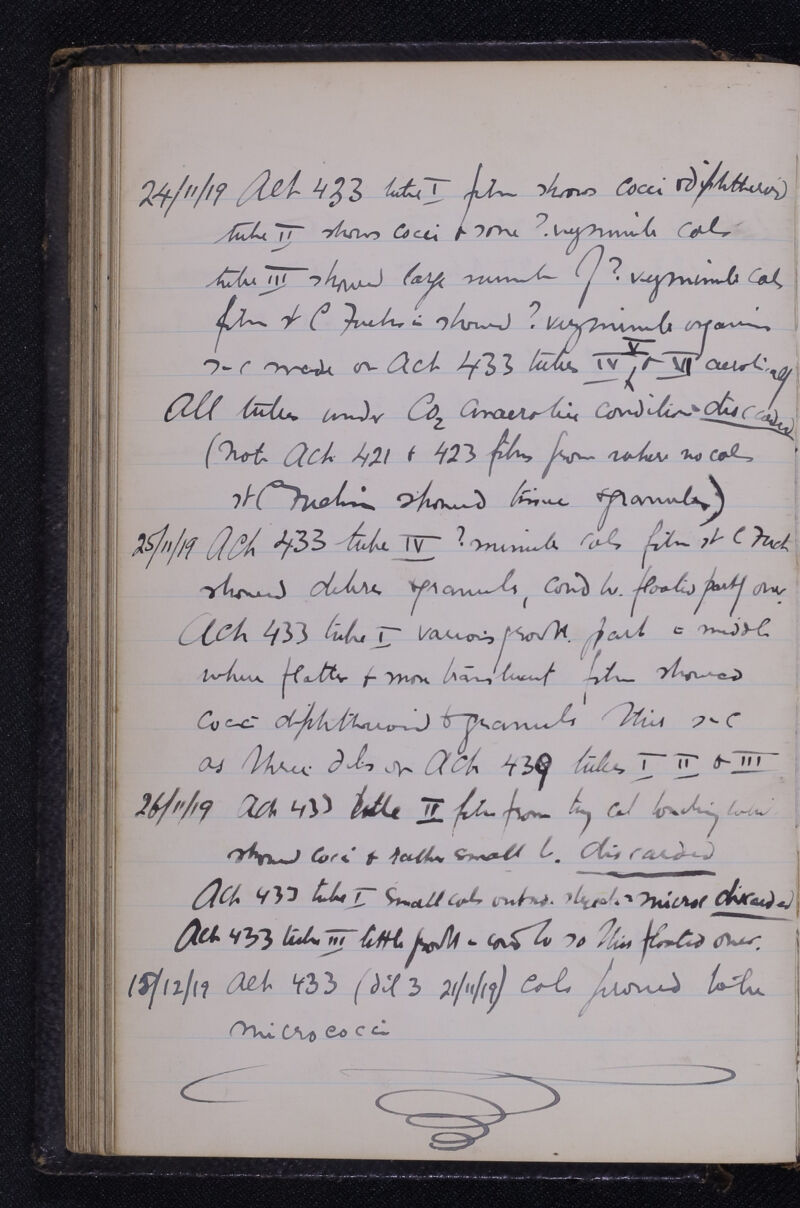 24/11/19 Ach 433 tube I film shows cocci & diphtheroid
tube II shows cocci & some ? very minute cols
tube III showed large number of ? very minute cols
film st C Fuchsin showed ? very minute organisms
s-c made on Ach 433 tubes IV, V & VI aerobically
All tubes under CO2 anaerobic conditions discarded
(Note Ach 421 & 423 films from where no cols
st C Fuchsin showed tissue & granules)
25/11/19 Ach 433 tube IV ? minute cols film st C Fuch
showed debris & granules, cond w. floated part over.
Ach 433 tube I various growth. part in middle
where flatter & more translucent film showed
cocci diphtheroid & granules This s-c
as three dils on Ach 439 tubes I II & III
26/11/19 Ach 433 tube II film from tiny col touching
showed cocci & rather small b. discarded
Ach 433 tube I small cols discarded
Ach 433 tube III little growth so this floated over.
15/12/19 Ach 433 (dil 3 21/11/19) cols proved to be
micrococci